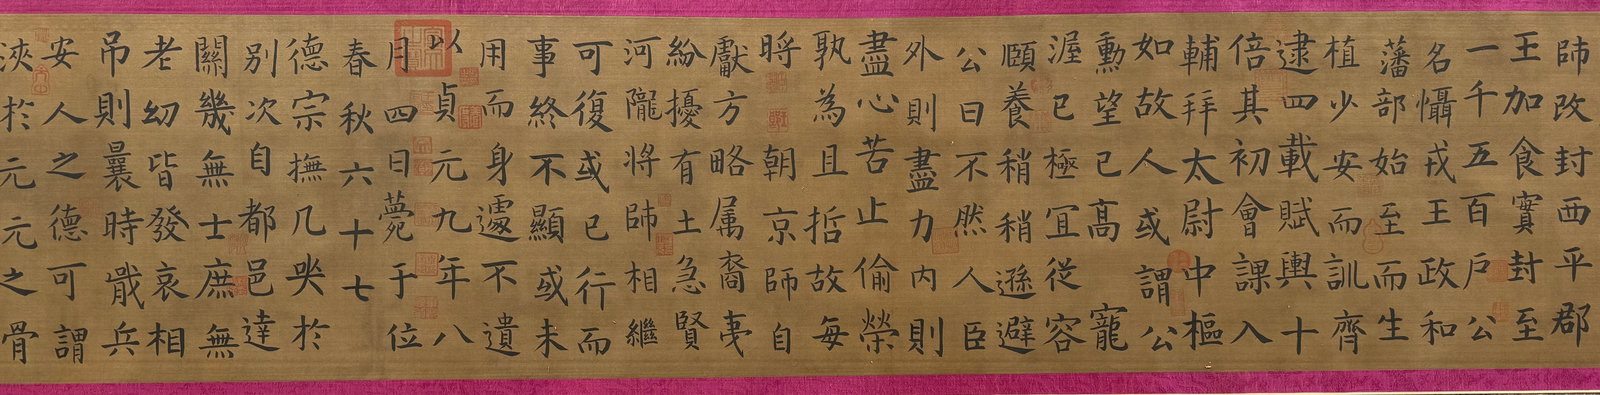 師改封西平郡
王加食實封至
一千五百戶公
名懾戎王政和
藩部始至而生
植少安而訓齊
逮四載賦輿十
倍其初會課入
輔拜太尉中樞
如故人或謂公
勳望已高寵
渥已極宜從容
頤養稍稍遜避
公曰不然人臣
外則盡力內則
盡心苦止偷榮
孰為且哲故每
將朝京師自
獻方略属裔夷
紛擾有土急賢
河隴将帥相繼
可復或已行而
事終不顯或未
用而身遽不遺
以貞元九年八
月四日薨于位
春秋六十七
德宗撫几哭於
别次自都邑達
關幾無士庶無
老幼皆發哀相
吊則曩時戢兵
安人之德可謂
浹於元元之骨